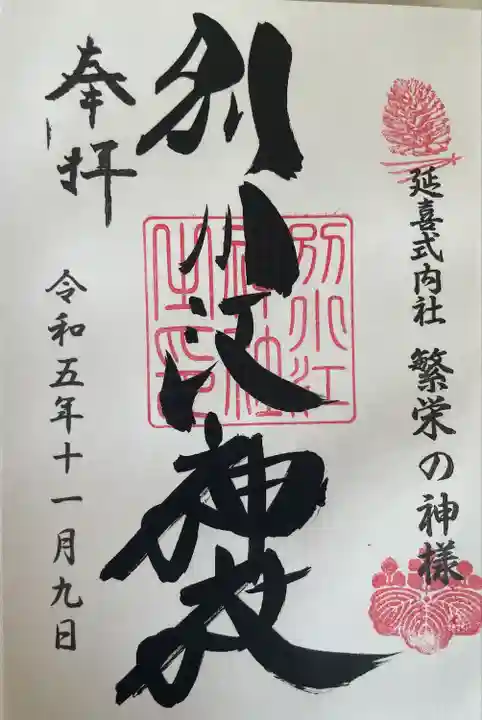 延喜式内社 繁栄の神様
別小江神社
別小江
神社
之印
奉拝
令和五年十一月九日